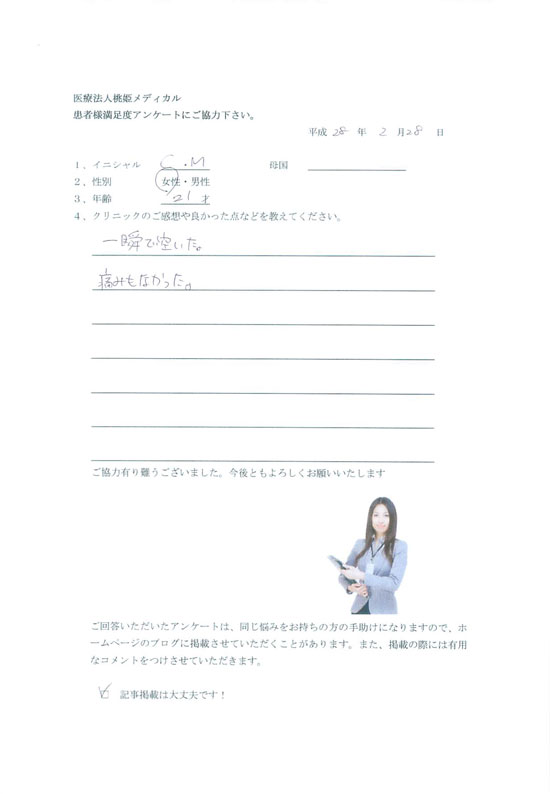 医療法人桃姫メディカル
患者様満足度アンケートにご協力下さい。
平成 28 年 2 月28 日
1、イニシャル C.M 母国
2、性別 女性・男性
3、年齢 21才
4、クリニックのご感想や良かった点などを教えてください。
一瞬で空いた。
痛みもなかった。
ご協力有り難うございました。今後ともよろしくお願いいたします
ご回答いただいたアンケートは、同じ悩みをお持ちの方の手助けになりますので、ホ
ームページのブログに掲載させていただくことがあります。また、掲載の際には有用
なコメントをつけさせていただきます。
記事掲載は大丈夫です！